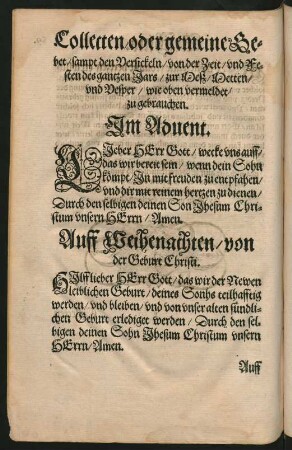 Collecten/oder gemeine Ge-
bet/sampt den Versickeln/von der Zeit/vnd Fe-
sten des gantzen Jars/zur Meß/Metten/
vnd Vesper/wie oben vermeldet/
zu gebrauchen.
Im Aduent.
LIeber HErr Gott/wecke vns auff/
das wir bereit sein/wenn dein Sohn
kömpt/In mit freuden zu empfahen/
vnd dir mit reinem hertzen zu dienen/
Durch den selbigen deinen Son Jhesum Chri-
stum vnsern HErrn/Amen.
Auff Weihenachten/von
der Geburt Christi.
HIlff lieber HErr Gott/das wir der Newen
leiblichen Geburt/deines Sonhs teilhafftig
werden/vnd bleiben/vnd von vnser alten sündli-
chen Geburt erlediget werden/Durch den sel-
bigen deinen Sohn Jhesum Christum vnsern
HErrn/Amen.
Auff